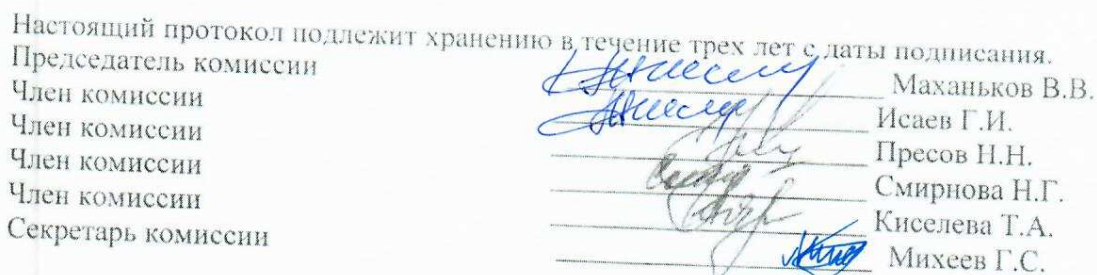 Настоящий протокол подлежит хранению в течение трех лет с даты подписания.
Председатель комиссии Маханьков В.В.
Член комиссии Исаев Г.И.
Член комиссии Пресов Н.Н.
Член комиссии Смирнова Н.Г.
Член комиссии Киселева Т.А.
Секретарь комиссии Михеев Г.С.